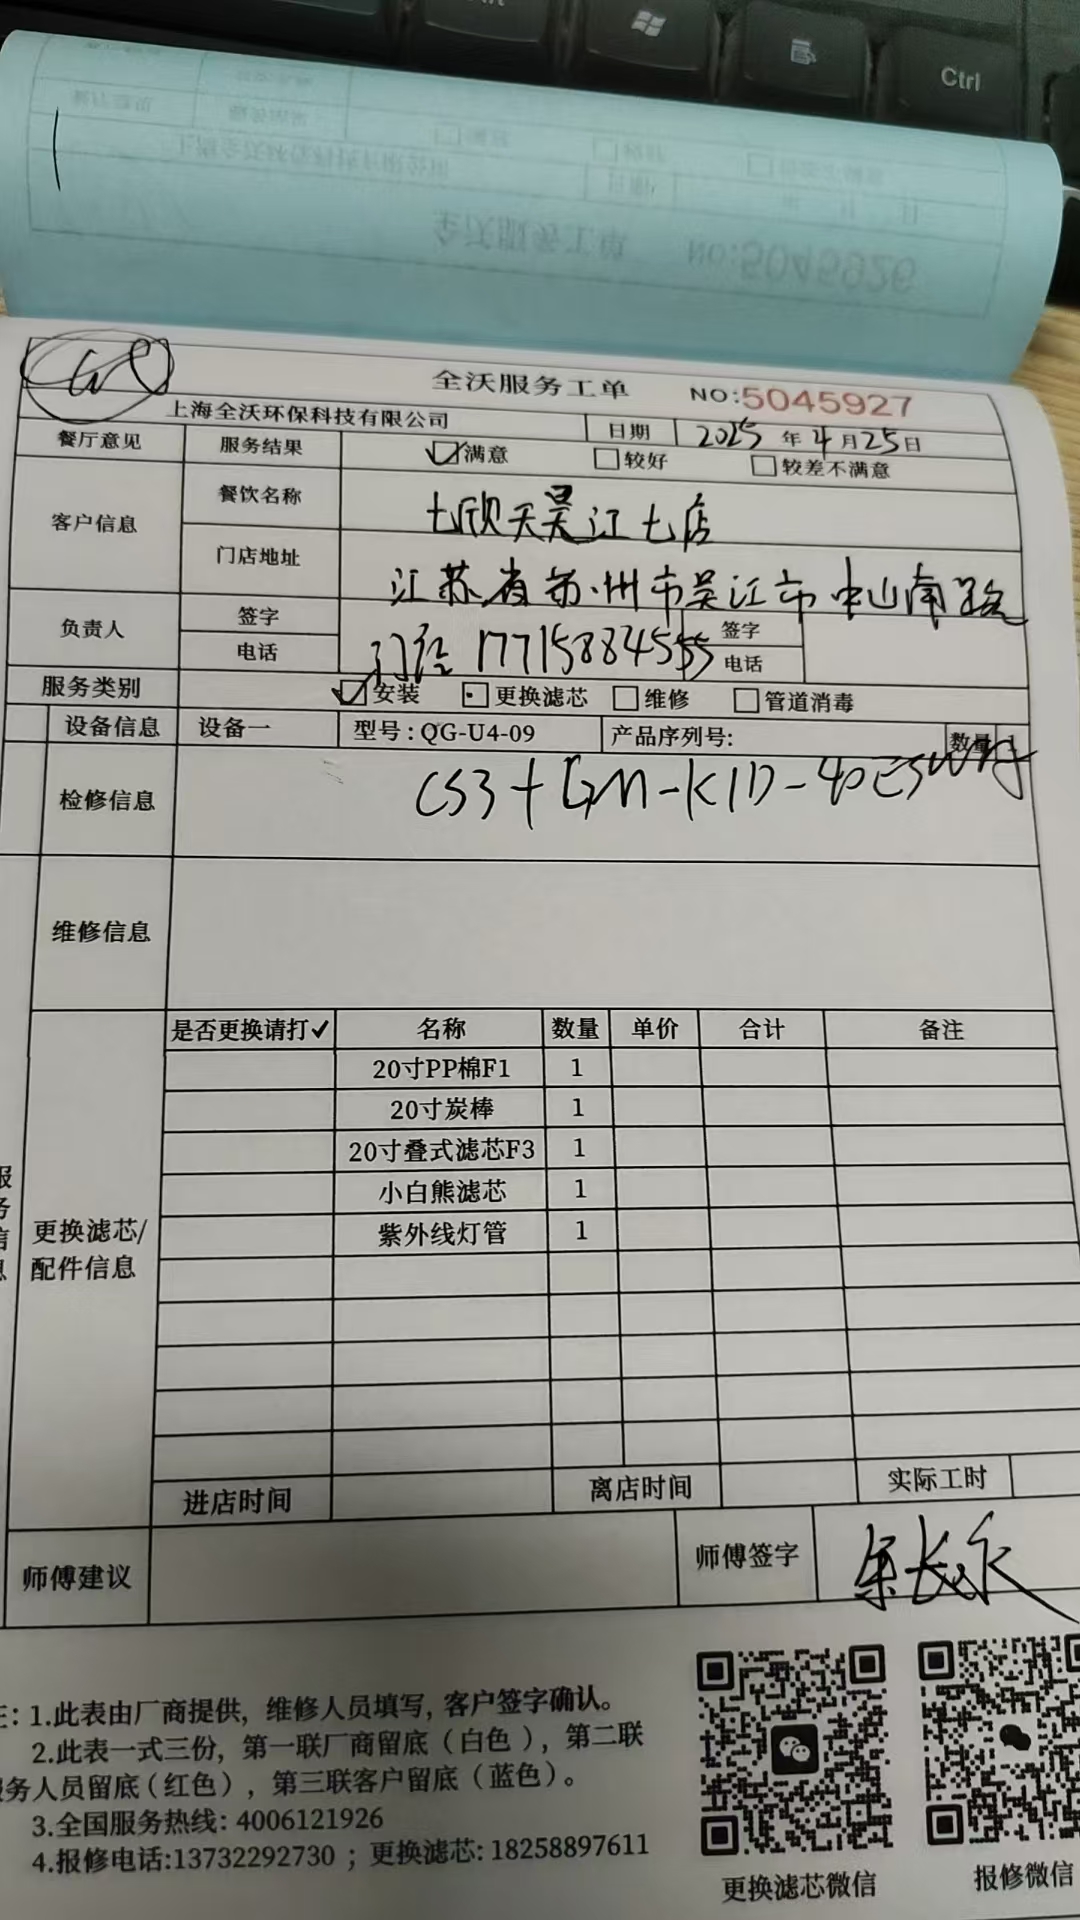 Ctrl
全沃服务工单 NO:5045926
全沃服务工单 NO:5045927
上海全沃环保科技有限公司 日期 2025年4月25日
餐厅意见 服务结果 满意 较好 较差不满意
客户信息 餐饮名称 七欣天吴江七店
门店地址 江苏省苏州市吴江市中山南路
负责人 签字 签字
电话 17715884555 电话
服务类别 安装 更换滤芯 维修 管道消毒
设备信息 设备一 型号:QG-U4-09 产品序列号: 数量 1
检修信息 CS3+GM-K1D-40ESW
维修信息
是否更换请打✓ 名称 数量 单价 合计 备注
20寸PP棉F1 1
20寸炭棒 1
20寸叠式滤芯F3 1
小白熊滤芯 1
紫外线灯管 1
服务信息
更换滤芯/
配件信息
进店时间 离店时间 实际工时
师傅建议 师傅签字 余长永
注:1.此表由厂商提供,维修人员填写,客户签字确认。
2.此表一式三份,第一联厂商留底(白色),第二联
服务人员留底(红色),第三联客户留底(蓝色)。
3.全国服务热线:4006121926
4.报修电话:13732292730 ; 更换滤芯:18258897611
更换滤芯微信 报修微信